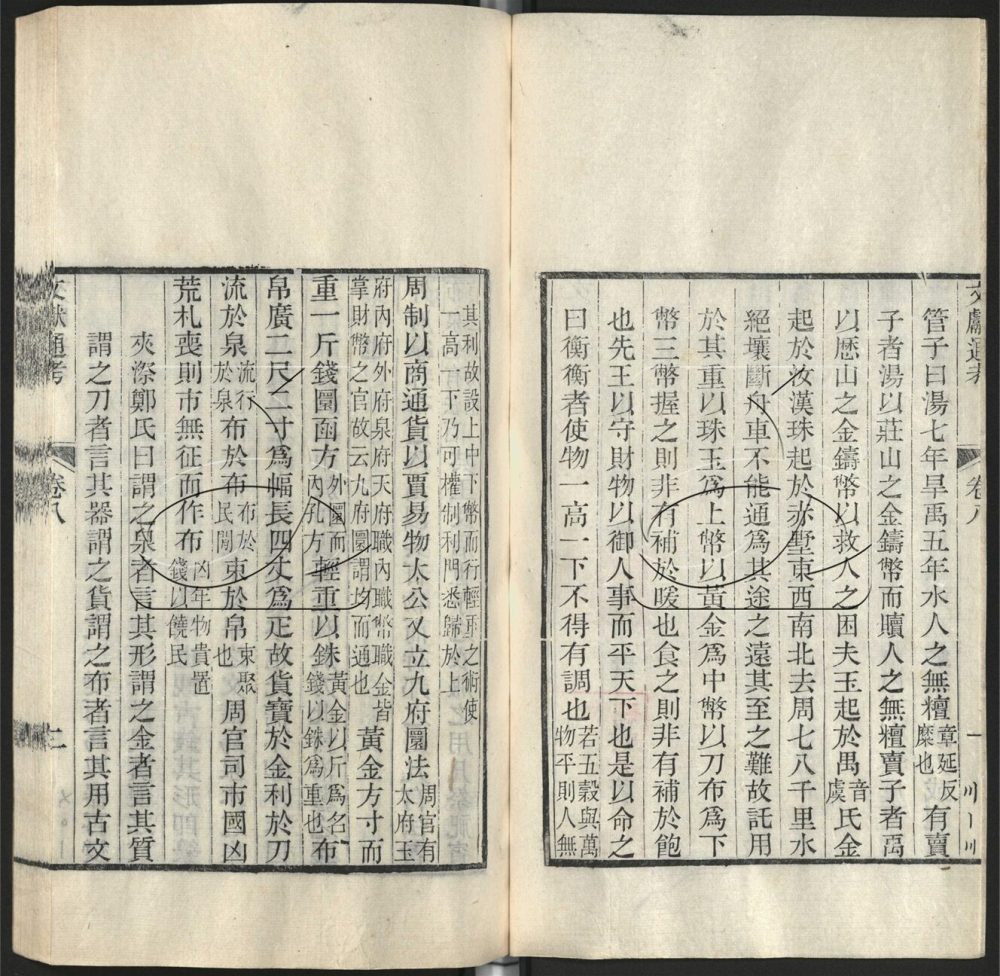 管子曰湯七年旱禹五年水人之無䊤章延反糜也有賣
子者湯以莊山之金鑄幣而贖人之無䊤賣子者禹
以歷山之金鑄幣以救人之困夫玉起於禺音虞氏金
起於汝漢珠起於赤墅東西南北去周七八千里水
絕壤斷舟車不能通為其途之遠其至之難故託用
於其重以珠玉為上幣以黃金為中幣以刀布為下
幣三幣握之則非有補於暖也食之則非有補於飽
也先王以守財物以御人事而平天下也是以命之
曰衡衡者使物一高一下不得有調也若五穀與萬物平則人無
其利故設上中下幣而行輕重之術使一高一下乃可權制利門悉歸於上
周制以商通貨以賈易物太公又立九府圜法周官有太府玉
府內府外府泉府天府職內職幣職金皆掌財幣之官故云九府圜謂均而通也黃金方寸而
重一斤錢圜函方外圜而內孔方輕重以銖黃金以斤為名錢以銖為重也布
帛廣二尺二寸為幅長四丈為疋故貨寶於金利於刀
流於泉流行於泉布於布布於民間束於帛束聚也周官司市國凶
荒札喪則市無征而作布凶年物貴置錢以饒民
夾漈鄭氏曰謂之泉者言其形謂之金者言其質
謂之刀者言其器謂之貨謂之布者言其用古文
文獻通考
卷八
一
文獻通考
卷八
二